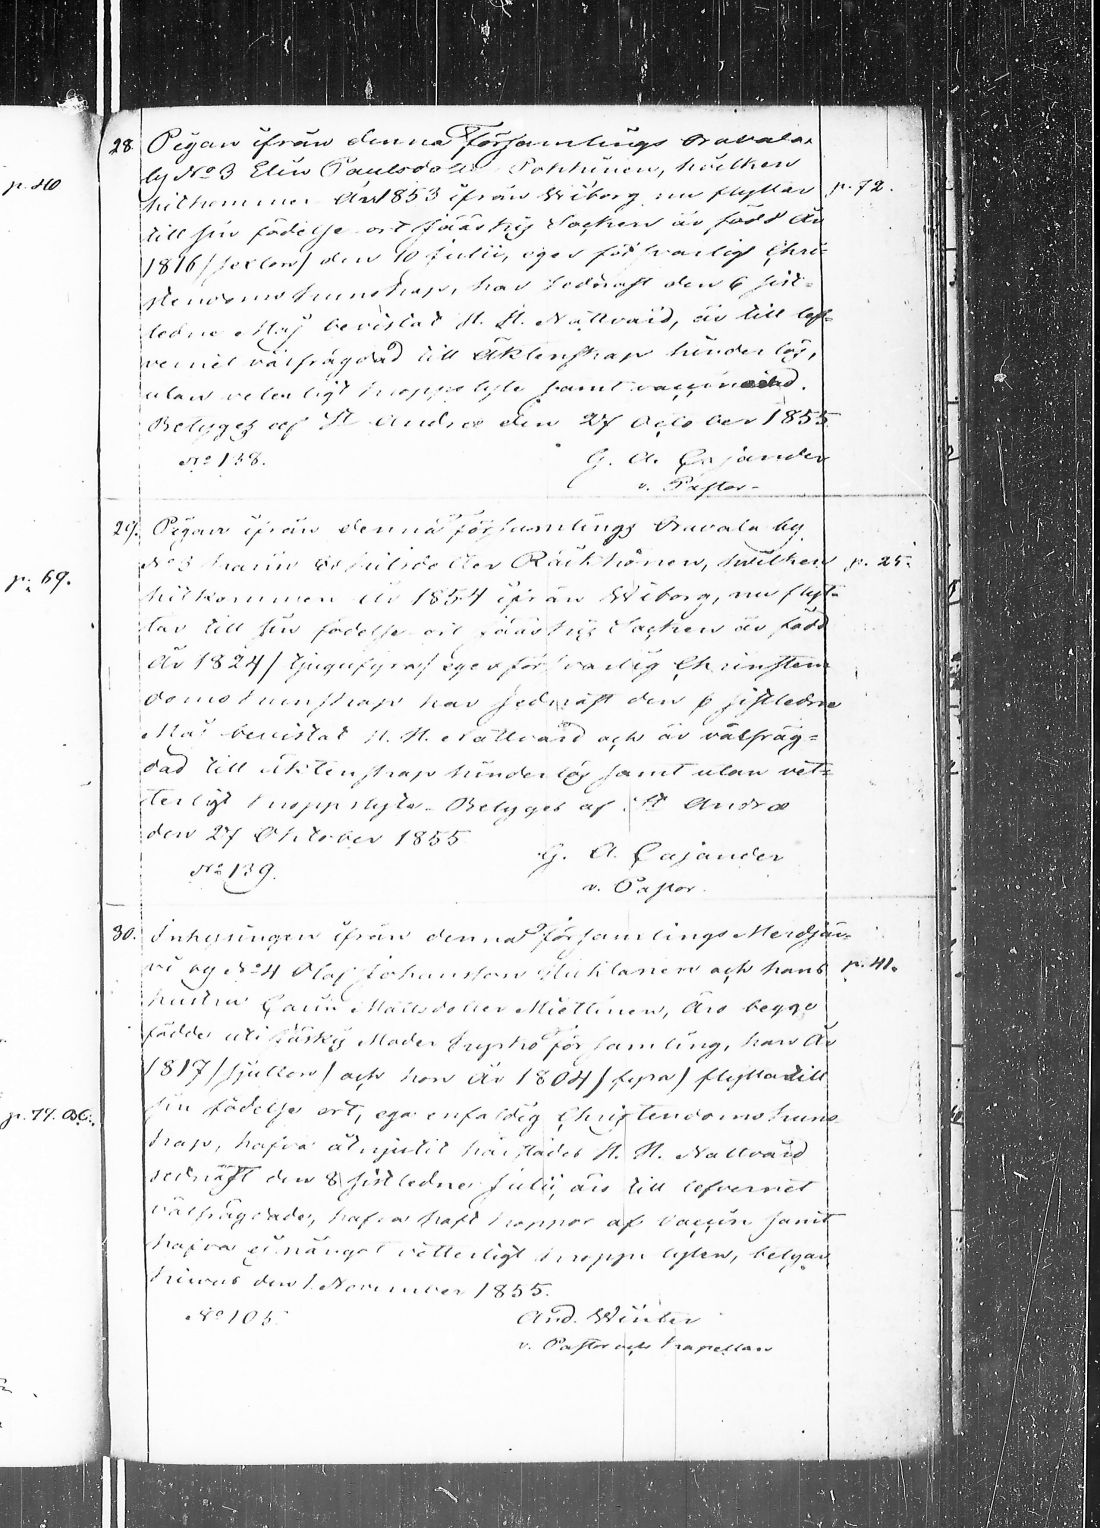 28. Pigan ifrån denna Församlings Oravala
p. 40
by No 3 Elin Paulsdotter Pohhinen, hvilken
hitkommen År 1853 ifrån Wiborg nu flyttar p. 72.
till sin födelse ort Jääskis Socken är född År
1816 /sexton/ den 10 Julii, eger försvarlig Chri-
stendoms kunskap, har sednast den 6 sist-
ledne Maj bevistat H. H. Nattvard, är till lef-
vernet välfrägdad till Äktenskap hinderlös,
utan veterligt kroppslyte samt vaccinerad.
Betyges af St Andree den 27 October 1855
No 138. G. A. Cajander
v. Pastor.
29. Pigan ifrån denna Församlings Oravala by
No 3 Karin Räikkönen, hvilken p. 25.
p. 69.
hitkommen År 1854 ifrån Wiborg, nu flyt-
tar till sin födelse ort Jääskis Socken är född
År 1824 /tjugufyra/ eger försvarlig Chrinsten
doms kunskap har sednast den sistledne
Maj bevistat H. H. Nattvard och är välfräg-
dad till äktenskap hinderlös samt utan vet-
terligt kroppslyte. Betyges af St Andræ
den 27 Oktober 1855
No 139. G. A. Cajander
v. Pastor.
30. Inhysingen ifrån denna församlings
by No 4 Olof Johansson och hans p. 41.
hustru Carin Mattsdotter Miettinen, äro begge
födde uti Jääskis Moder Kyrko församling, han År
1817 /sjutton/ och hon År 1804 /fyra/ flytta till
p. 77.
sin födelse ort, ega enfaldig Christendoms kuns-
kap, hafva åtnjutit härstädes H. H. Nattvard
sednast den 8 sistledne Julii, äro till lefvernet
välfrägdade, hafva haft koppor af vaccin samt
hafva ei något vetterligt kropps lyten, betygar
den 1 November 1855.
No 105 And. Winter
v. Pastor och kapellan